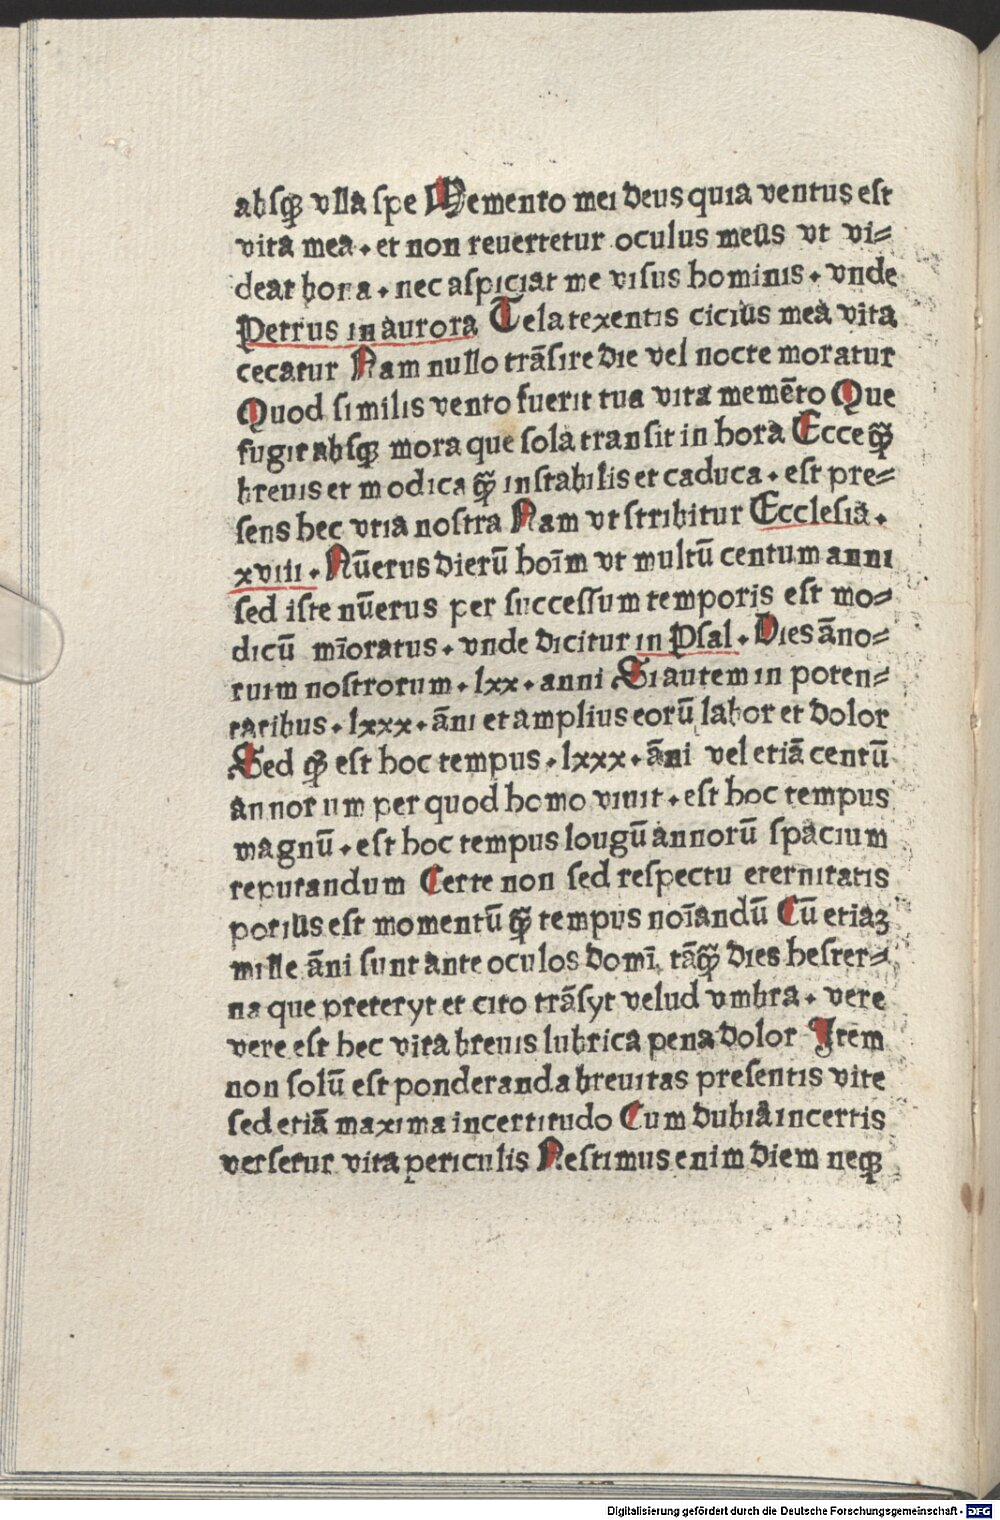 absqꝫ vlla spe Memento mei deus quia ventus est
vita mea . et non reuertetur oculus meus vt vi⸗
deat bona . nec aspiciat me visus hominis . vnde
Petrus in aurora Tela texentis cicius mea vita
cecatur Nam nullo trāsire die vel nocte moratur
Quod similis vento fuerit tua vita memēto Que
fugit absqꝫ mora que sola transit in hora Ecce qꝫ̄
breuis et modica qꝫ̄ instabilis et caduca . est pre⸗
sens hec vtia nostra Nam vt stribitur Ecclesia .
xviii . Nūerus dierū hoīm vt multū centum anni
sed iste nūerus per successum temporis est mo⸗
dicū mīoratus . vnde dicitur in Psal . Dies āno⸗
ruim nostrorum . lxx . anni Si autem in poten⸗
tatibus . lxxx . āni et amplius eorū labor et dolor
Sed qꝫ est hoc tempus . lxxx . āni vel etiā centū
annorum per quod homo viuit . est hoc tempus
magnū . est hoc tempus lougū annorū spacium
reputandum Certe non sed respectu eternitatis
potius est momentū qꝫ̄ tempus noīandū Cū etiaꝫ
mille āni sunt ante oculos domī, tāqꝫ̄ dies hester⸗
na que preteryt et cito trāsyt velud vmbra . vere
vere est hec vita breuis lubrica pena dolor Item
non solū est ponderanda breuitas presentis vite
sed etiā maxima incertitudo Cum dubia incertis
versetur vita periculis Nestimus enim diem neqꝫ
Digitalisierung gefördert durch die Deutsche Forschungsgemeinschaft - DFG